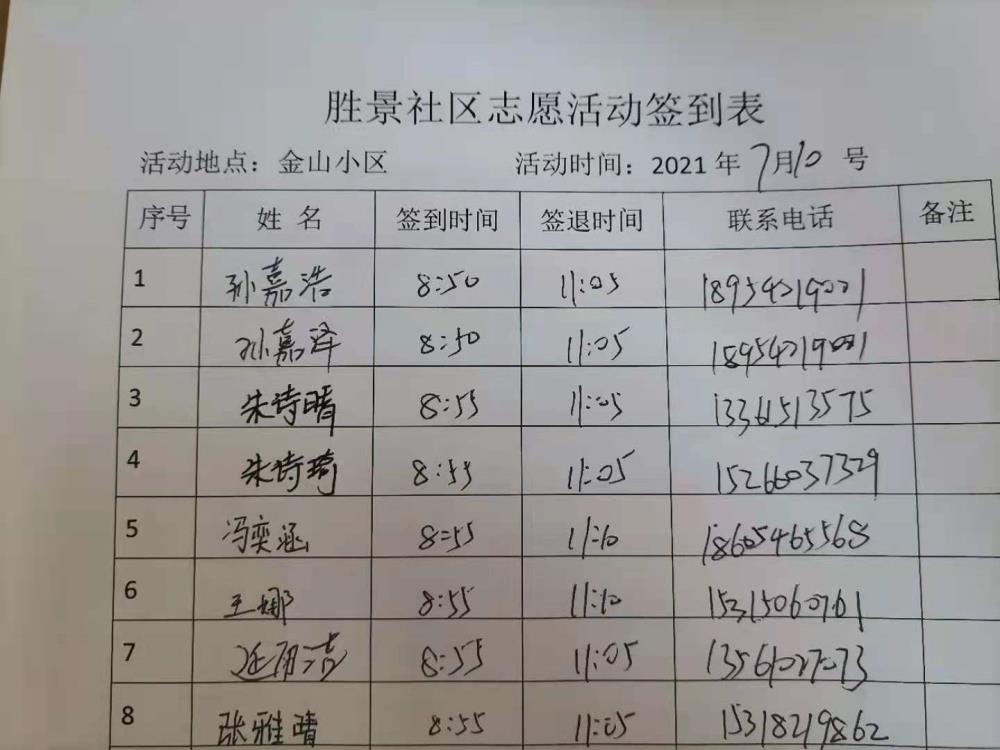 胜景社区志愿活动签到表
活动地点：金山小区 活动时间：2021年7月10号
序号 姓名 签到时间 签退时间 联系电话 备注
1 孙嘉浩 8:50 11:05 18954219021
2 孙嘉泽 8:50 11:05 18954219021
3 朱诗晴 8:55 11:05 13361513575
4 朱诗琦 8:55 11:05 15266037329
5 冯奕涵 8:55 11:10 18605465568
6 王娜 8:55 11:10 15315060761
7 8:55 11:05 13561027073
8 张雅晴 8:55 11:05 15318219862